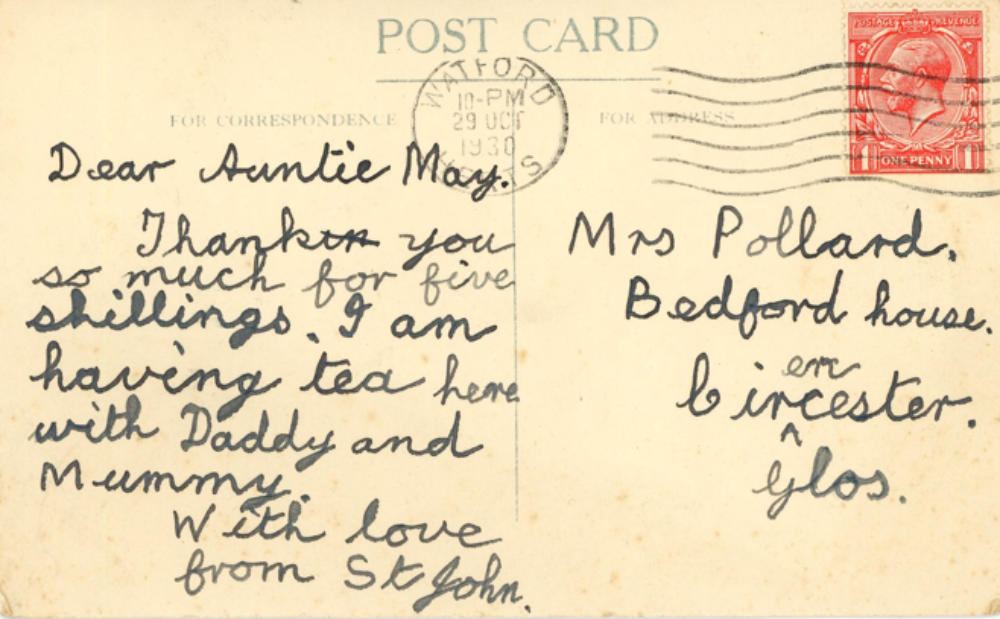 POST CARD
WATFORD
10-PM
29 OCT
1930
HERTS
POSTAGE REVENUE
1 ONE PENNY 1
FOR CORRESPONDENCE
FOR ADDRESS
Dear Auntie May.
Thank you
so much for five
shillings. I am
having tea here
with Daddy and
Mummy.
With love
from St John.
Mrs Pollard.
Bedford house.
en
Circester.
Glos.